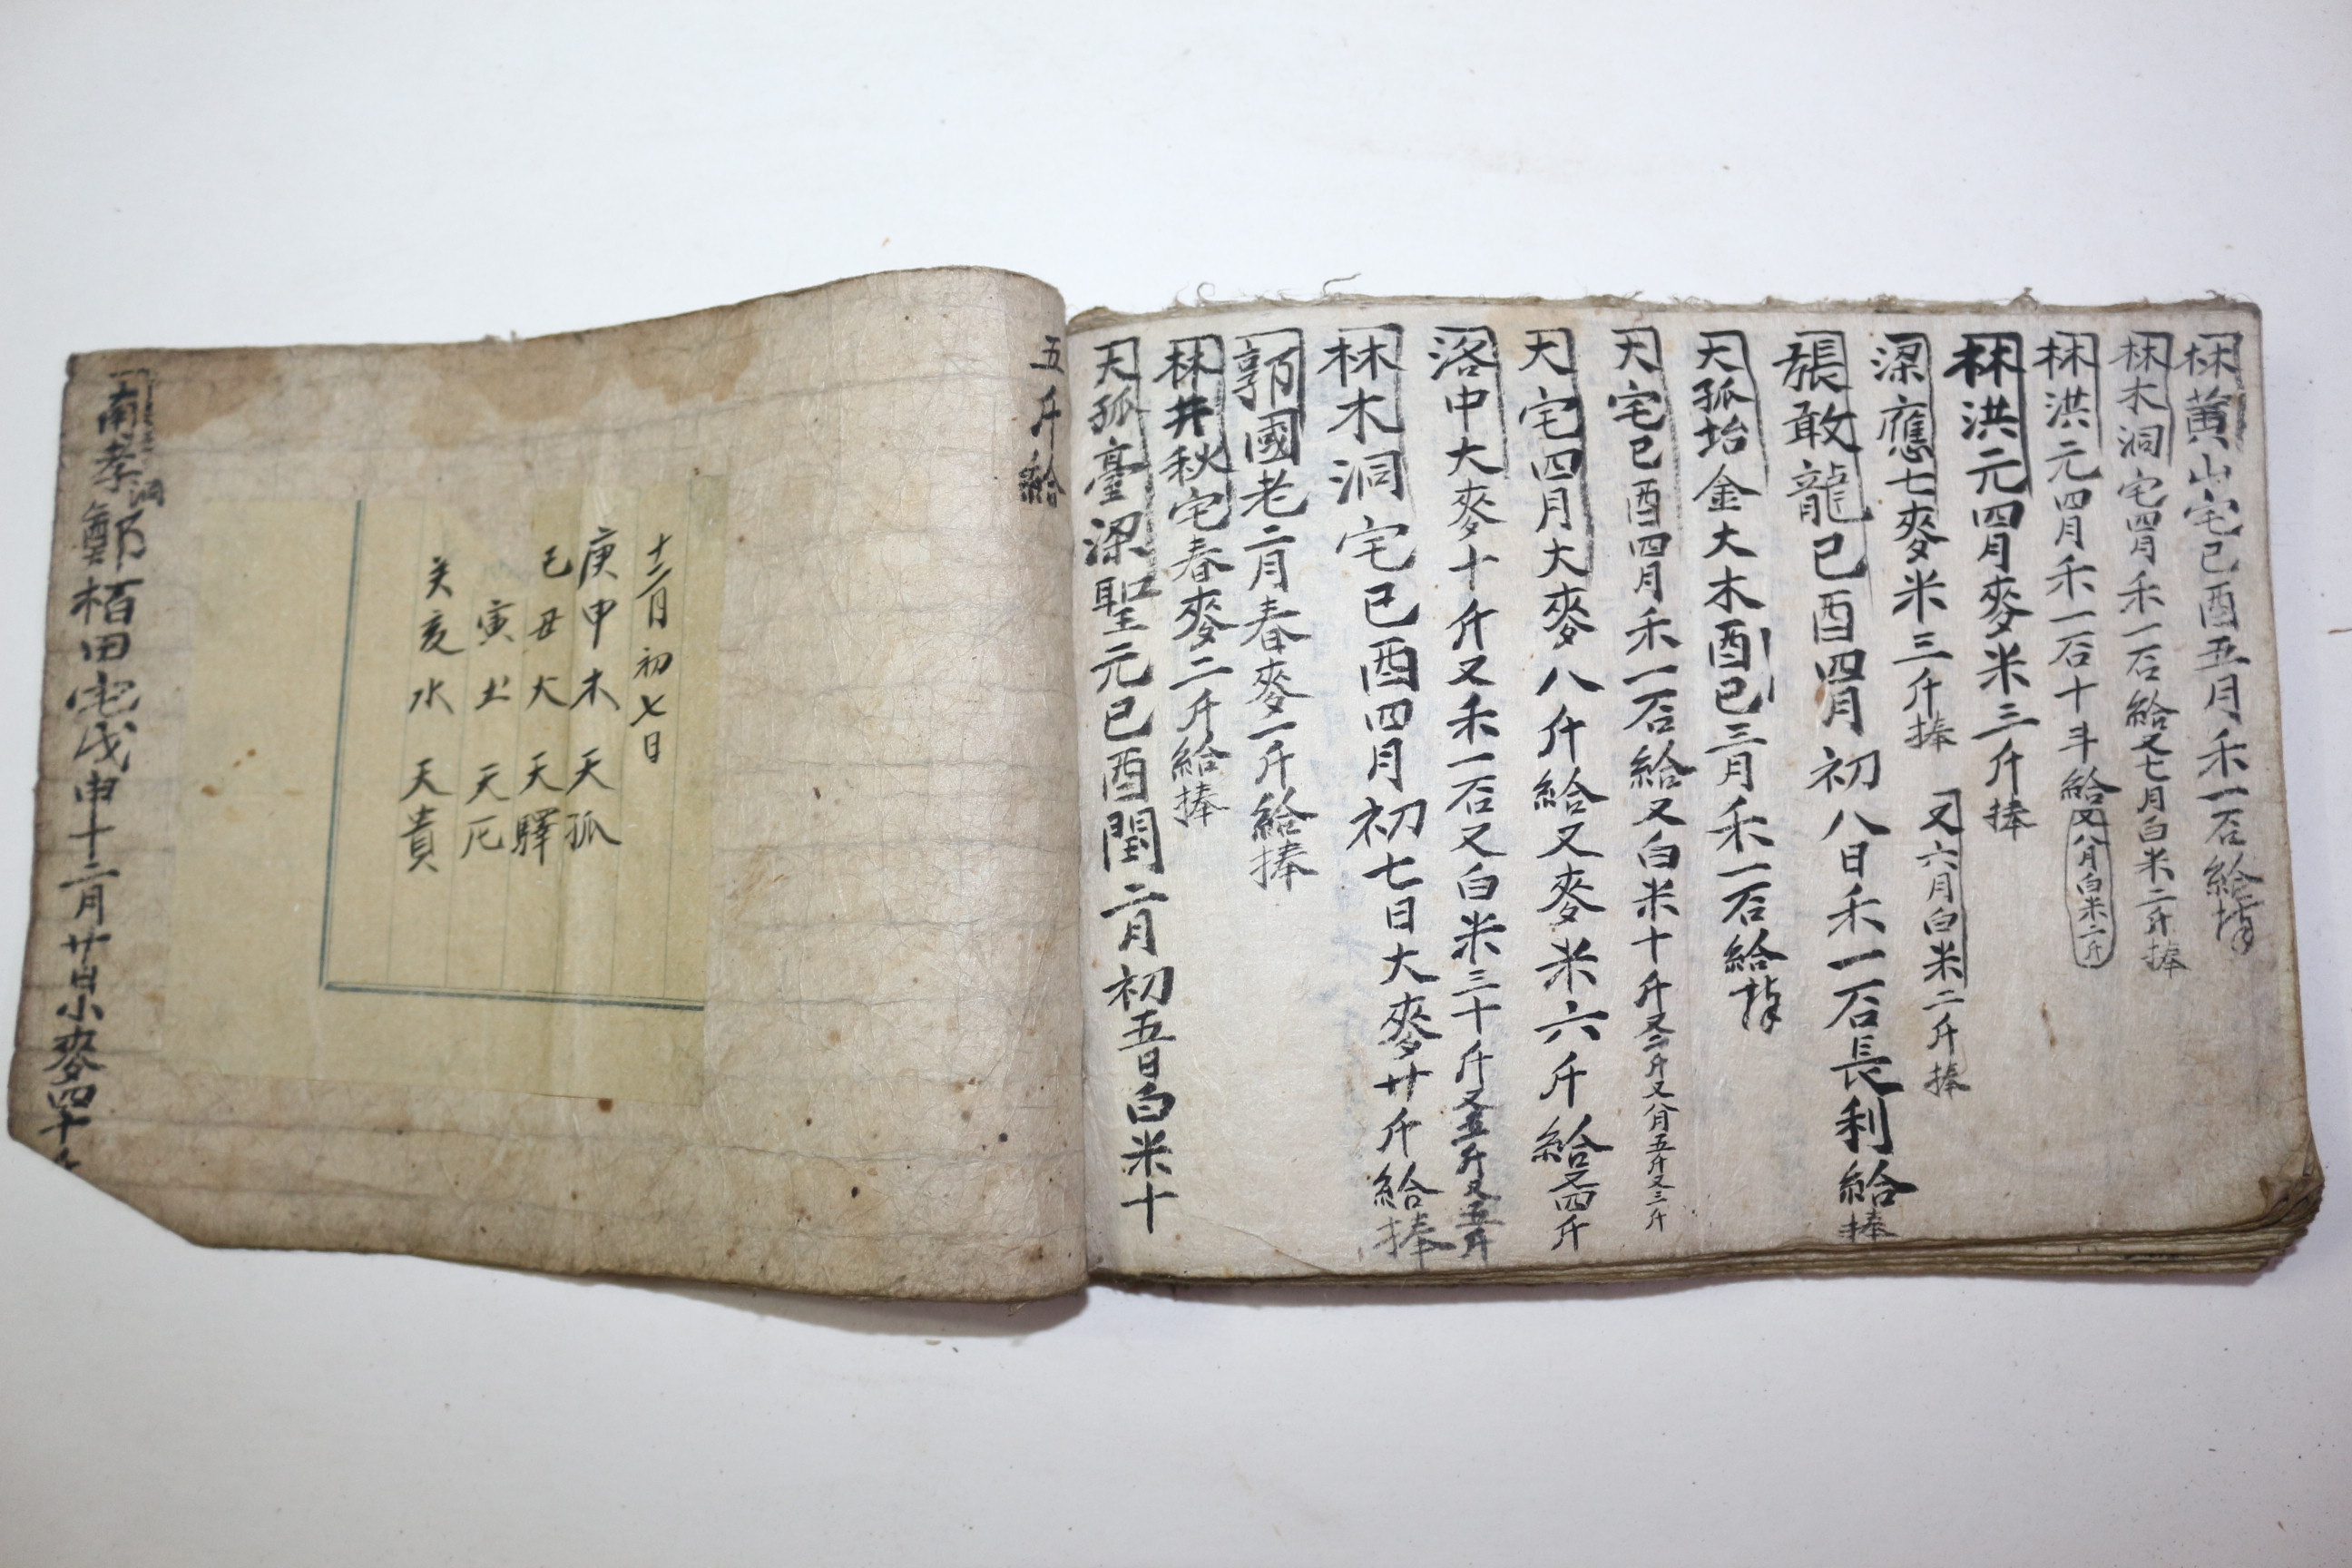 林黄山宅己酉五月禾一石給捧
林木洞宅四月禾一石給又七月白米二斤捧
林洪元四月禾一石十斗給又八月白米二斤
林洪元四月麥米三斤捧
梁應七麥米三斤捧
又六月白米二斤捧
張敢龍己酉四月初八日禾一石長利給捧
天孤坮金大木酉己三月禾一石給捧
天宅己酉四月禾一石給又白米十斤又二斤又八月五斤又三斤
天宅四月大麥八斤給又麥米六斤給又四斤
洛中大麥十斤又禾一石又白米三十斤又五斤又五斤
林木洞宅己酉四月初七日大麥廿斤給捧
郭國老二月春麥一斤給捧
林井秋宅春麥二斤給捧
天孤臺梁聖元己酉閏二月初五日白米十
五斤給
十二月初七日
庚申木天孤
己丑火天驛
寅土天厄
亥水天貴
南孝洞鄭栢田宅戊申十二月廿日小麥四十